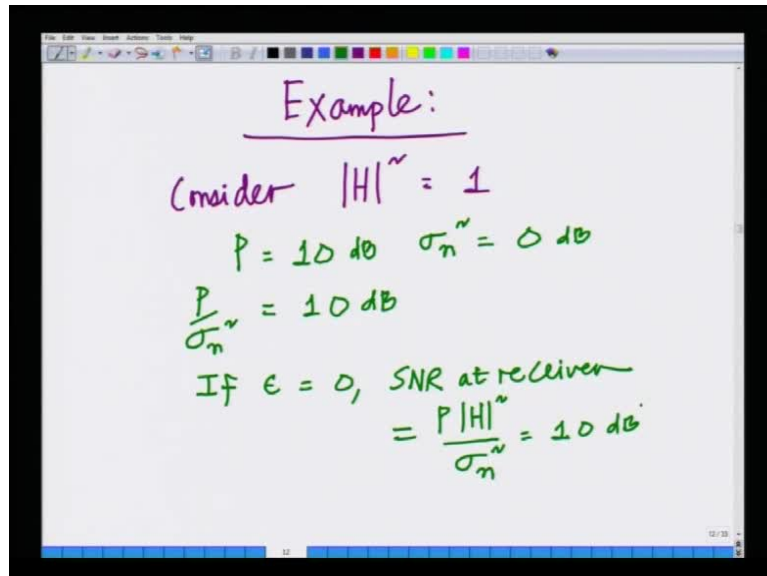 File Edit View Insert Actions Tools Help
Example:
Consider |H|² = 1
P = 10 dB σn² = 0 dB
P/σn² = 10 dB
If ε = 0, SNR at receiver
= P|H|²/σn² = 10 dB
12